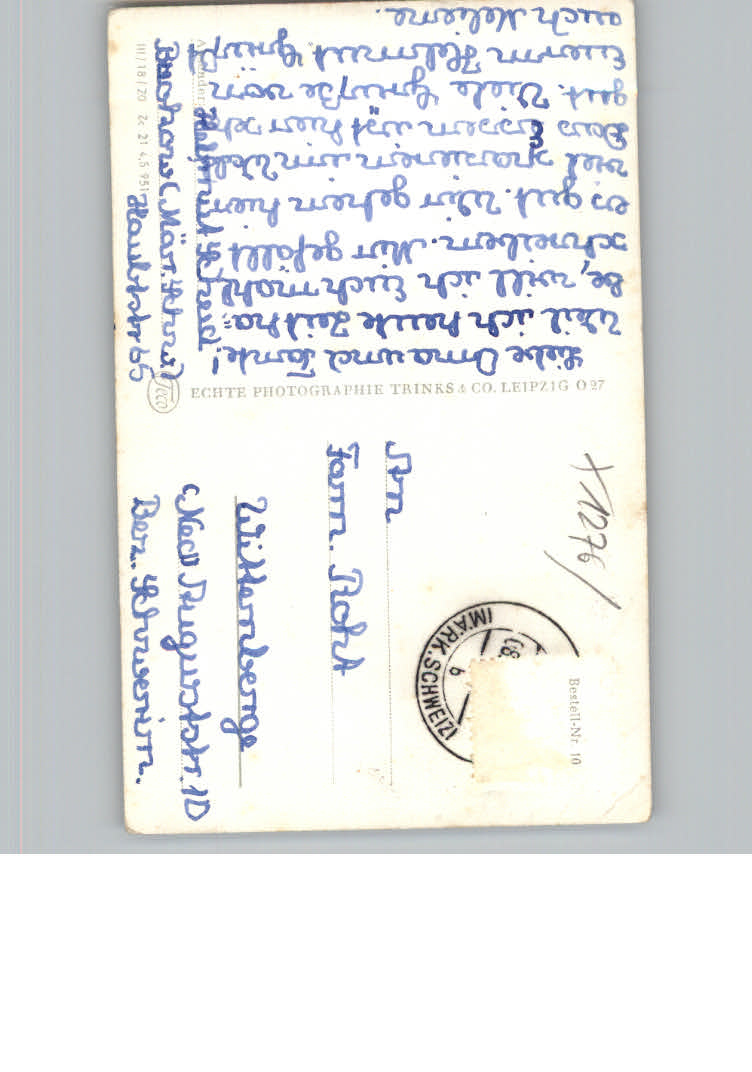 Liebe Oma und Tante!
Weil ich heute Zeit ha=
be, will ich Euch mahl
schreiben. Mir gefällt
es gut. Wir gehen hier
viel spazieren im Wald
Das Essen ist hier sehr
gut. Viele Grüße von
Euerm Helmut Grüßt
auch Helene.
Absender:
Helmut
Buckow
Hauptstr 65
III/18/20
ECHTE PHOTOGRAPHIE TRINKS & CO. LEIPZIG O 27
Teco
An
Fam. Roht
Wittenberge
Auguststr. 10
Bez. Schwerin.
X1276/
(MÄRK.SCHWEIZ)
b
Bestell-Nr. 10